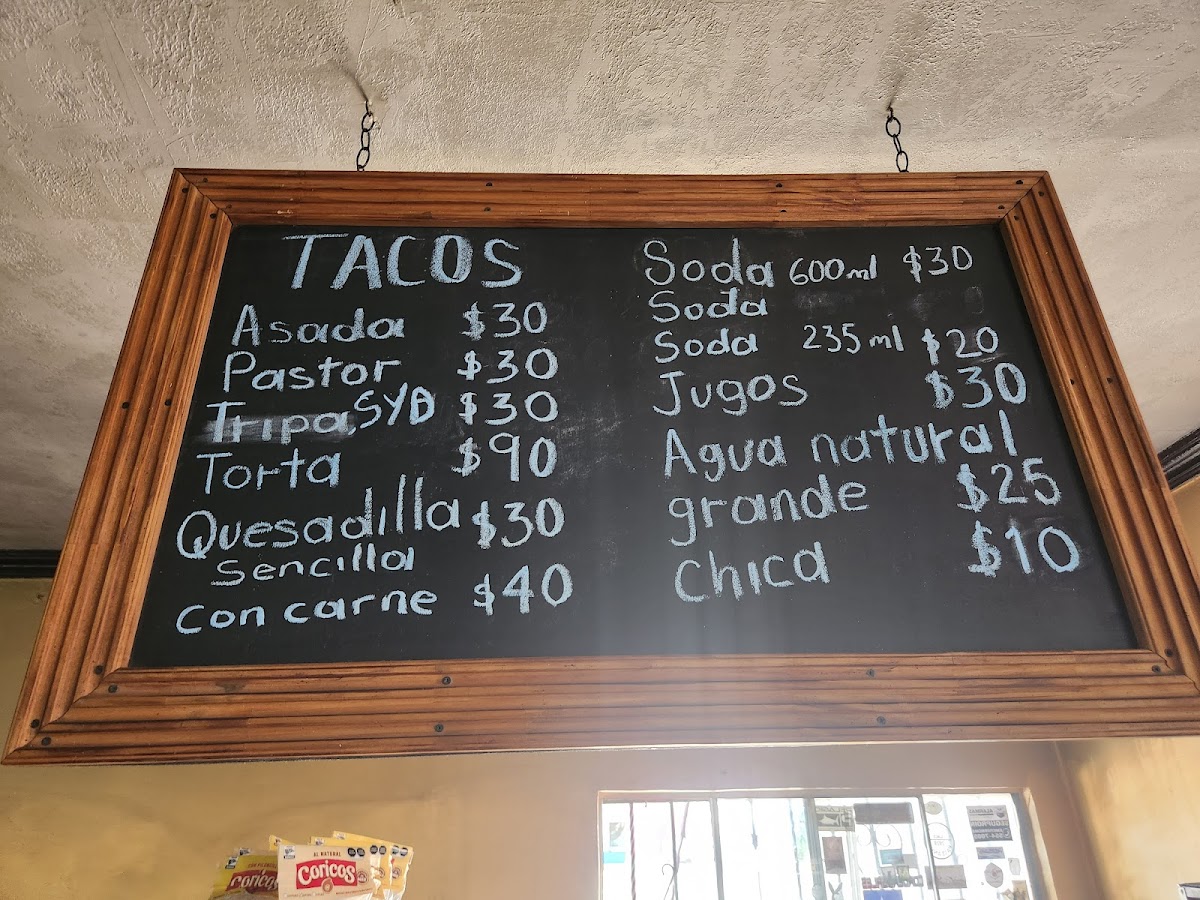 TACOS
Asada $30
Pastor $30
Tripa, SYD $30
Torta $90
Quesadilla $30
Sencilla
con carne $40
Soda 600ml $30
Soda
Soda 235 ml $20
Jugos $30
Agua natural
grande $25
chica $10
AL NATURAL
Coricos